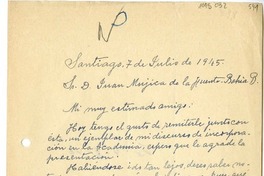 MAS 092
Santiago, 7 de Julio de 1945.
Sr. D. Juan Mujica de la Fuente - Bahía B.
Mi muy estimado amigo:
Hoy tengo el gusto de remitirle junto con
esta, un ejemplar de mi discurso de incorpora-
ción en la Academia, espero que le agrade la
presentación.
Habiendose ido tan lejos, desea